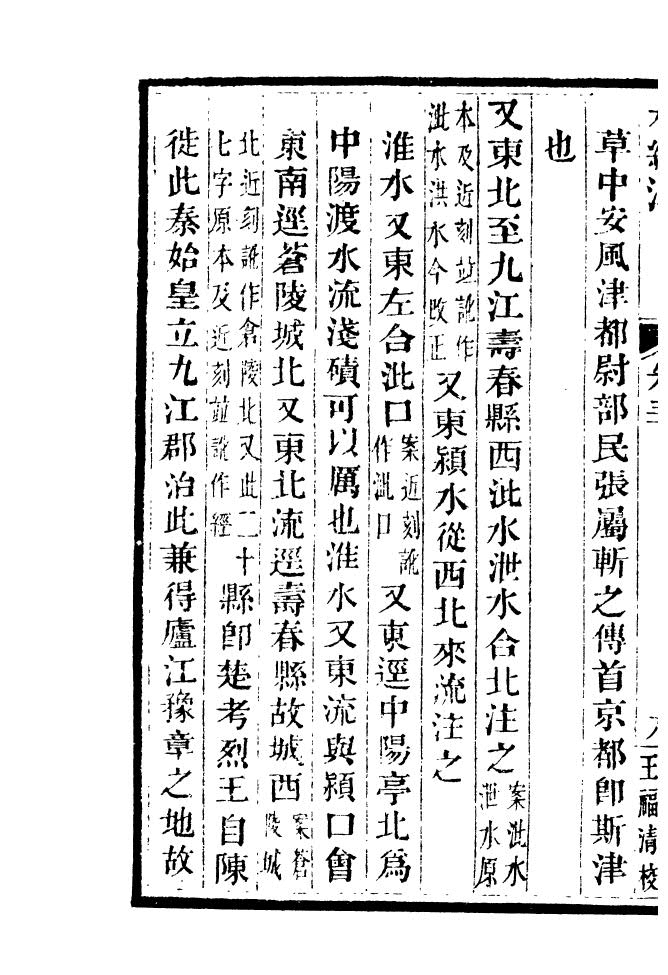 草中安風津都尉部民張屬斬之傳首京都卽斯津
也
又東北至九江壽春縣西沘水泄水合北注之案沘水泄水原
本及近刻竝訛作沘水洪水今改正又東潁水從西北來流注之
淮水又東左合沘口案近刻訛作沘口又東逕中陽亭北爲
中陽渡水流淺磧可以厲也淮水又東流與潁口會
東南逕蒼陵城北又東北流逕壽春縣故城西案蒼陵城
北近刻訛作倉陵北又此二十七字原本及近刻竝訛作經縣卽楚考烈王自陳
徙此秦始皇立九江郡治此兼得廬江豫章之地故
王福清校